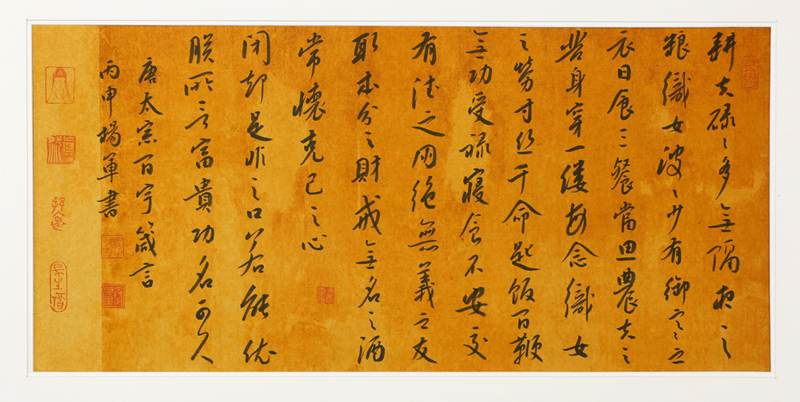 耕夫碌々多無隔夜之
粮織女波々少有御寒之
衣日食三餐當思農夫之
苦身穿一縷每念織女
之勞寸絲千命匙飯百鞭
無功受祿寢食不安交
有德之朋絕無義之友
取本分之財戒無名之酒
常懷克己之心
閉却是非之口若能依
朕所言富貴功名可久
唐太宗百字箴言
丙申楊軍書